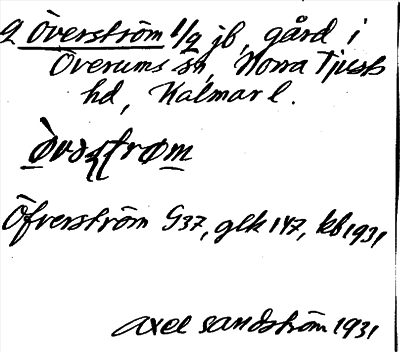 Överström 1/2 jb, gård i
Överums sn, Norra Tjusts
hd, Kalmar l.
Öfverström G37, glk 147, kb 1931
Axel Sandström 1931